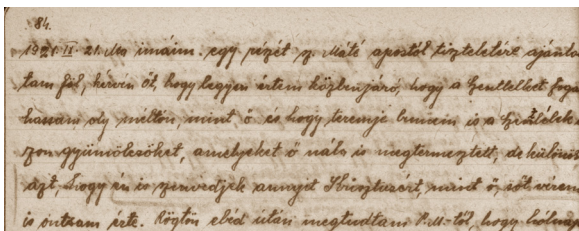 84.
1921. IX. 21. Ma imáim egy részét sz. Máté apostol tiszteletére ajánlot
tam föl, kérvén őt, hogy legyen értem közbenjáró, hogy a Szentlelket fogad
hassam oly méltón, mint ő és hogy teremje bennem is a Szentlélek a
zon gyümölcsöket, amelyeket ő nála is megtermeztett, de különösen
azt, hogy én is szenvedjek annyit Krisztusért, mint ő, sőt vérem
is ontsam érte. Rögtön ebéd után megtudtam P.M.-től, hogy